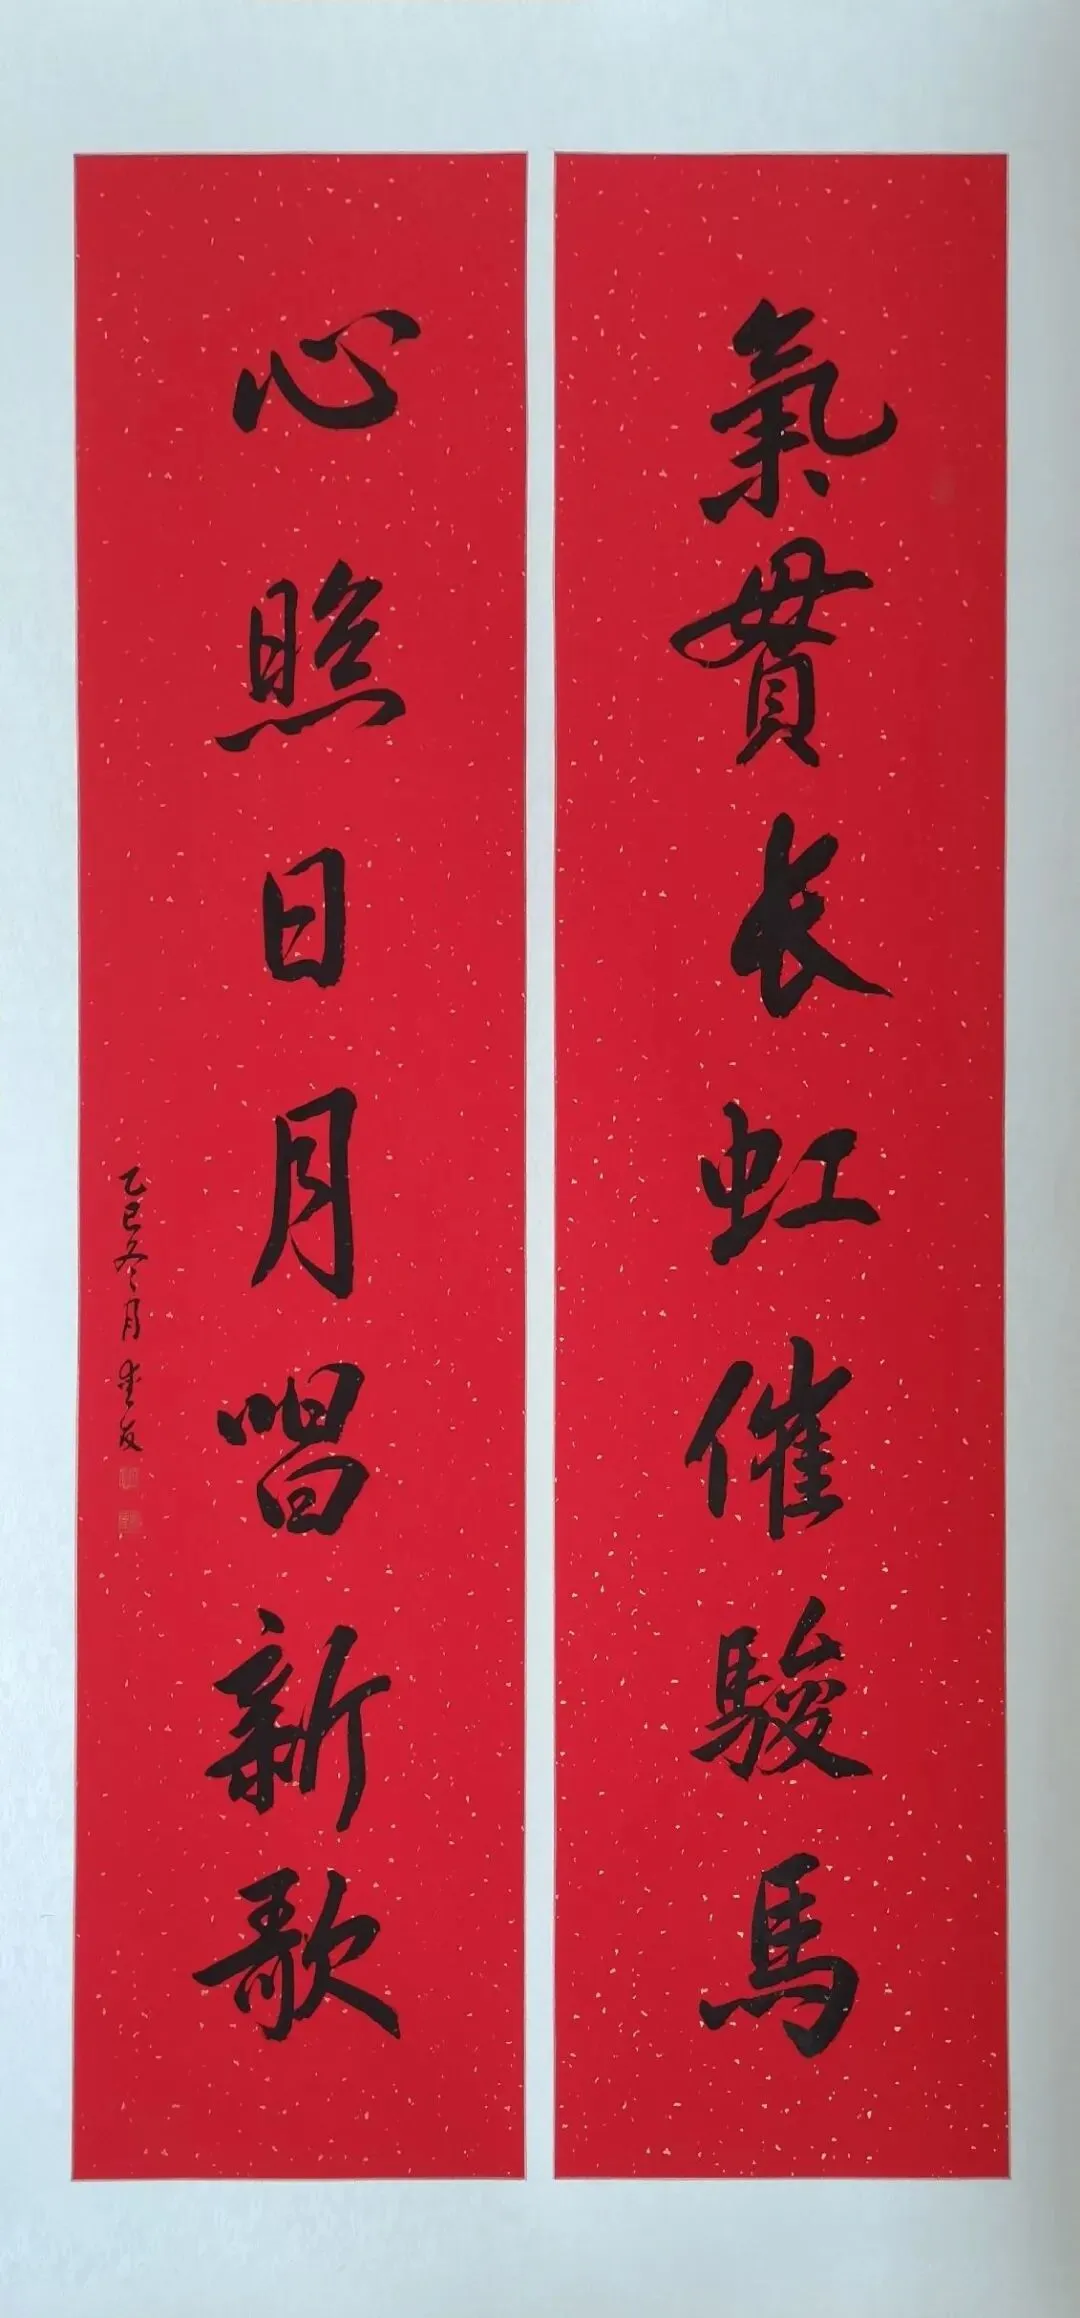 氣貫长虹催駿馬
心照日月唱新歌
乙巳冬月